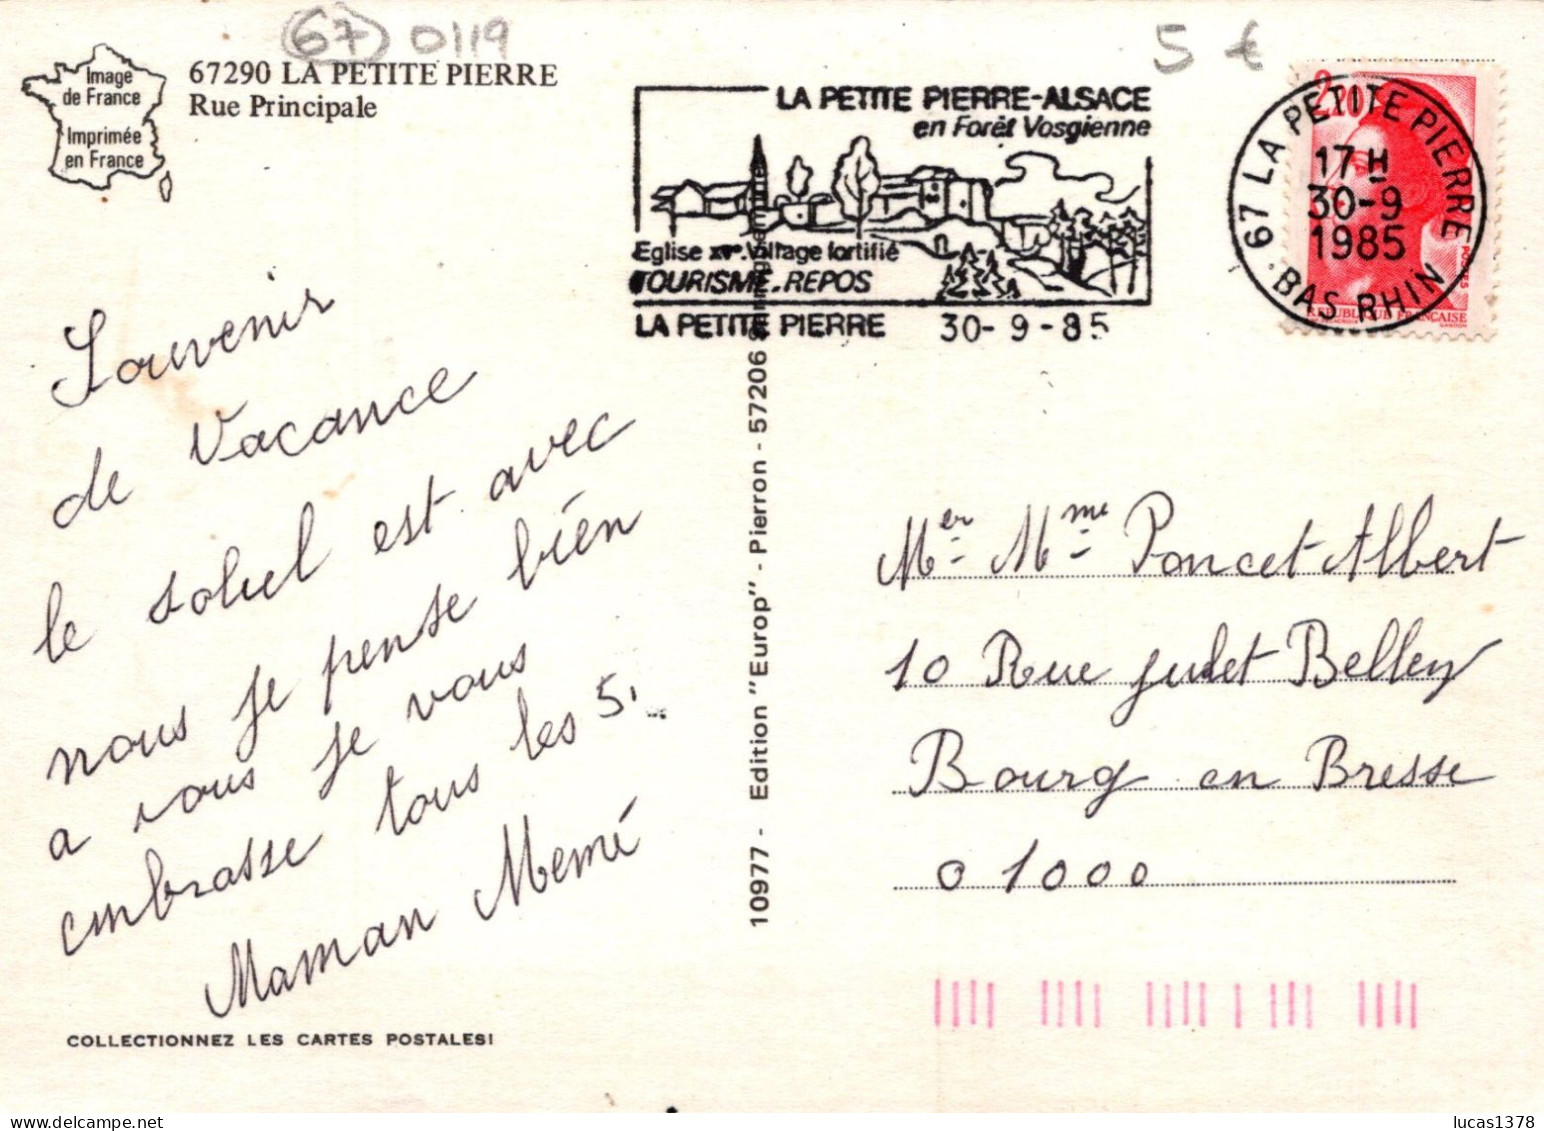 67 0119
5 €
Image
de France
Imprimée
en France
67290 LA PETITE PIERRE
Rue Principale
LA PETITE PIERRE-ALSACE
en Forêt Vosgienne
Eglise XVe. Village fortifié
TOURISME. REPOS
LA PETITE PIERRE 30-9-85
2,20
67 LA PETITE PIERRE
17 H
30-9
1985
BAS RHIN
POSTES
REPUBLIQUE FRANCAISE
GANDON
Souvenir
de Vacance
le soluel est avec
nous je pense bien
a vous je vous
embrasse tous les 5.
Maman Memé
COLLECTIONNEZ LES CARTES POSTALES!
10977 - Edition "Europ" - Pierron - 57206 Sarreguemines
Mer Mme Poncet Albert
10 Rue julet Belley
Bourg en Bresse
01000
lucas1378